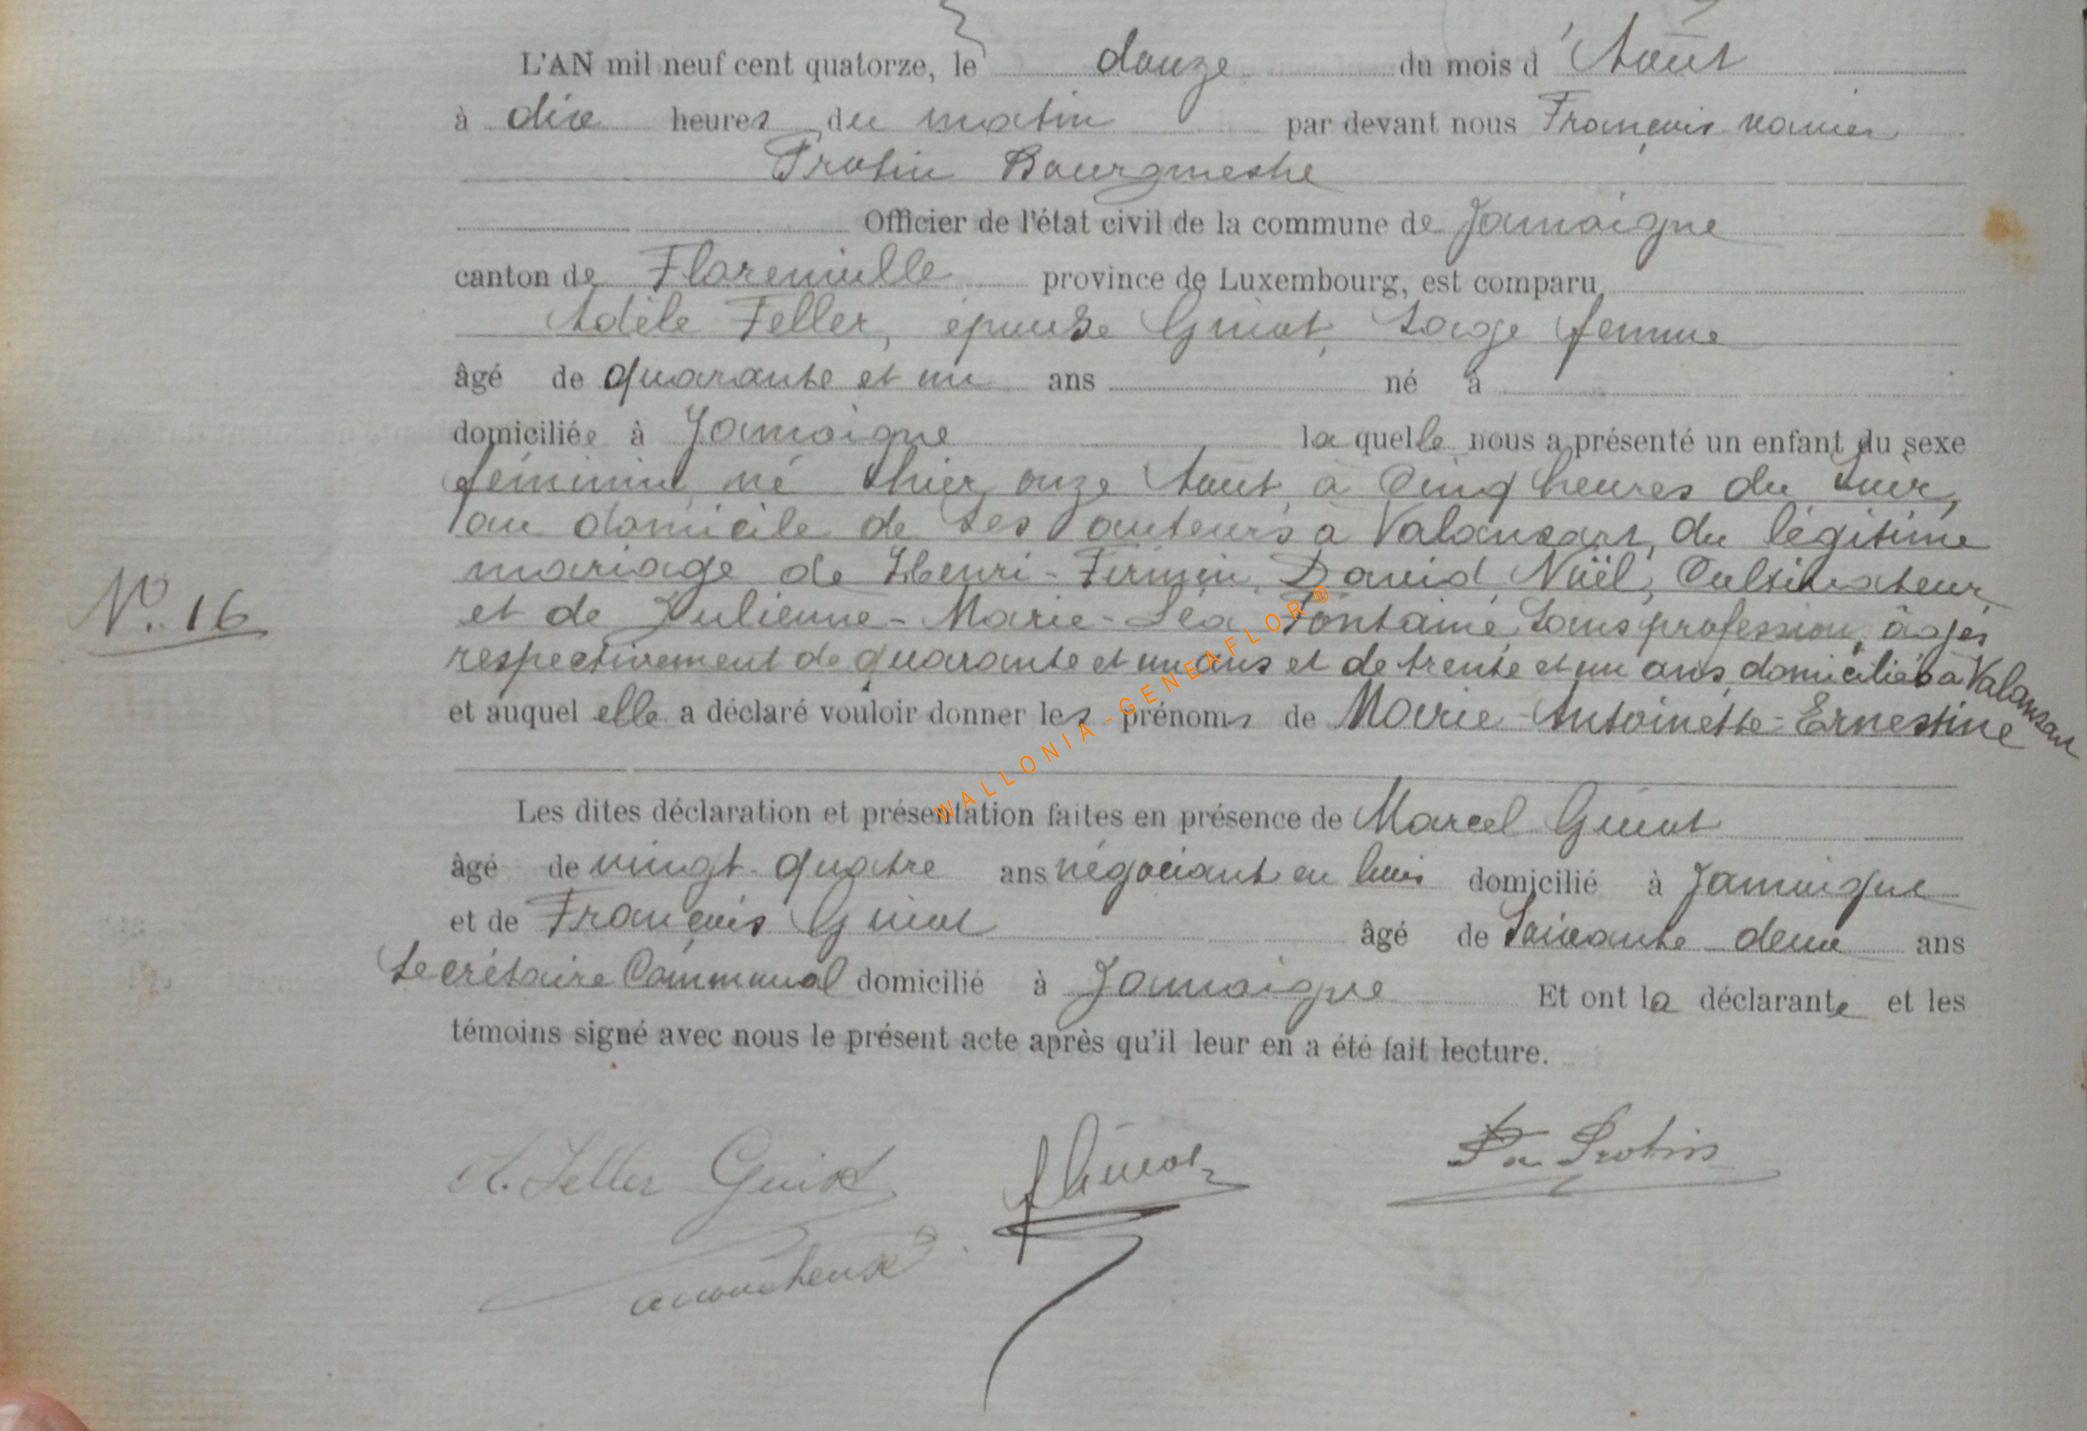 L'AN mil neuf cent quatorze, le douze du mois d'Août
à dix heures du matin par devant nous François xavier
Protin Bourgmestre
Officier de l'état civil de la commune de Jamoigne
canton de Florenville province de Luxembourg, est comparu
Adèle Feller, épouse Guiot, Sage femme
âgé de quarante et un ans né à
domiciliée à Jamoigne la quelle nous a présenté un enfant du sexe
féminin, né hier onze Août, à Cinq heures du Soir,
au domicile de ses auteurs à Valansart, du légitime
N°. 16
mariage de Henri-Firmin David Noël, Cultivateur
et de Julienne-Marie-Léa Fontaine, Sans profession, âgés
respectivement de quarante et un ans et de trente et un ans, domiciliés à Valansart
et auquel elle a déclaré vouloir donner les prénoms de Marie-Antoinette-Ernestine
WALLONIA-GENEAFLOR®
Les dites déclaration et présentation faites en présence de Marcel Guiot
âgé de vingt-quatre ans négociant en bois domicilié à Jamoigne
et de François Guiot âgé de Soixante deux ans
Secrétaire Communal domicilié à Jamoigne Et ont la déclarante et les
témoins signé avec nous le présent acte après qu'il leur en a été fait lecture.
A. Feller Guiot Guiot Protin
accoucheuse